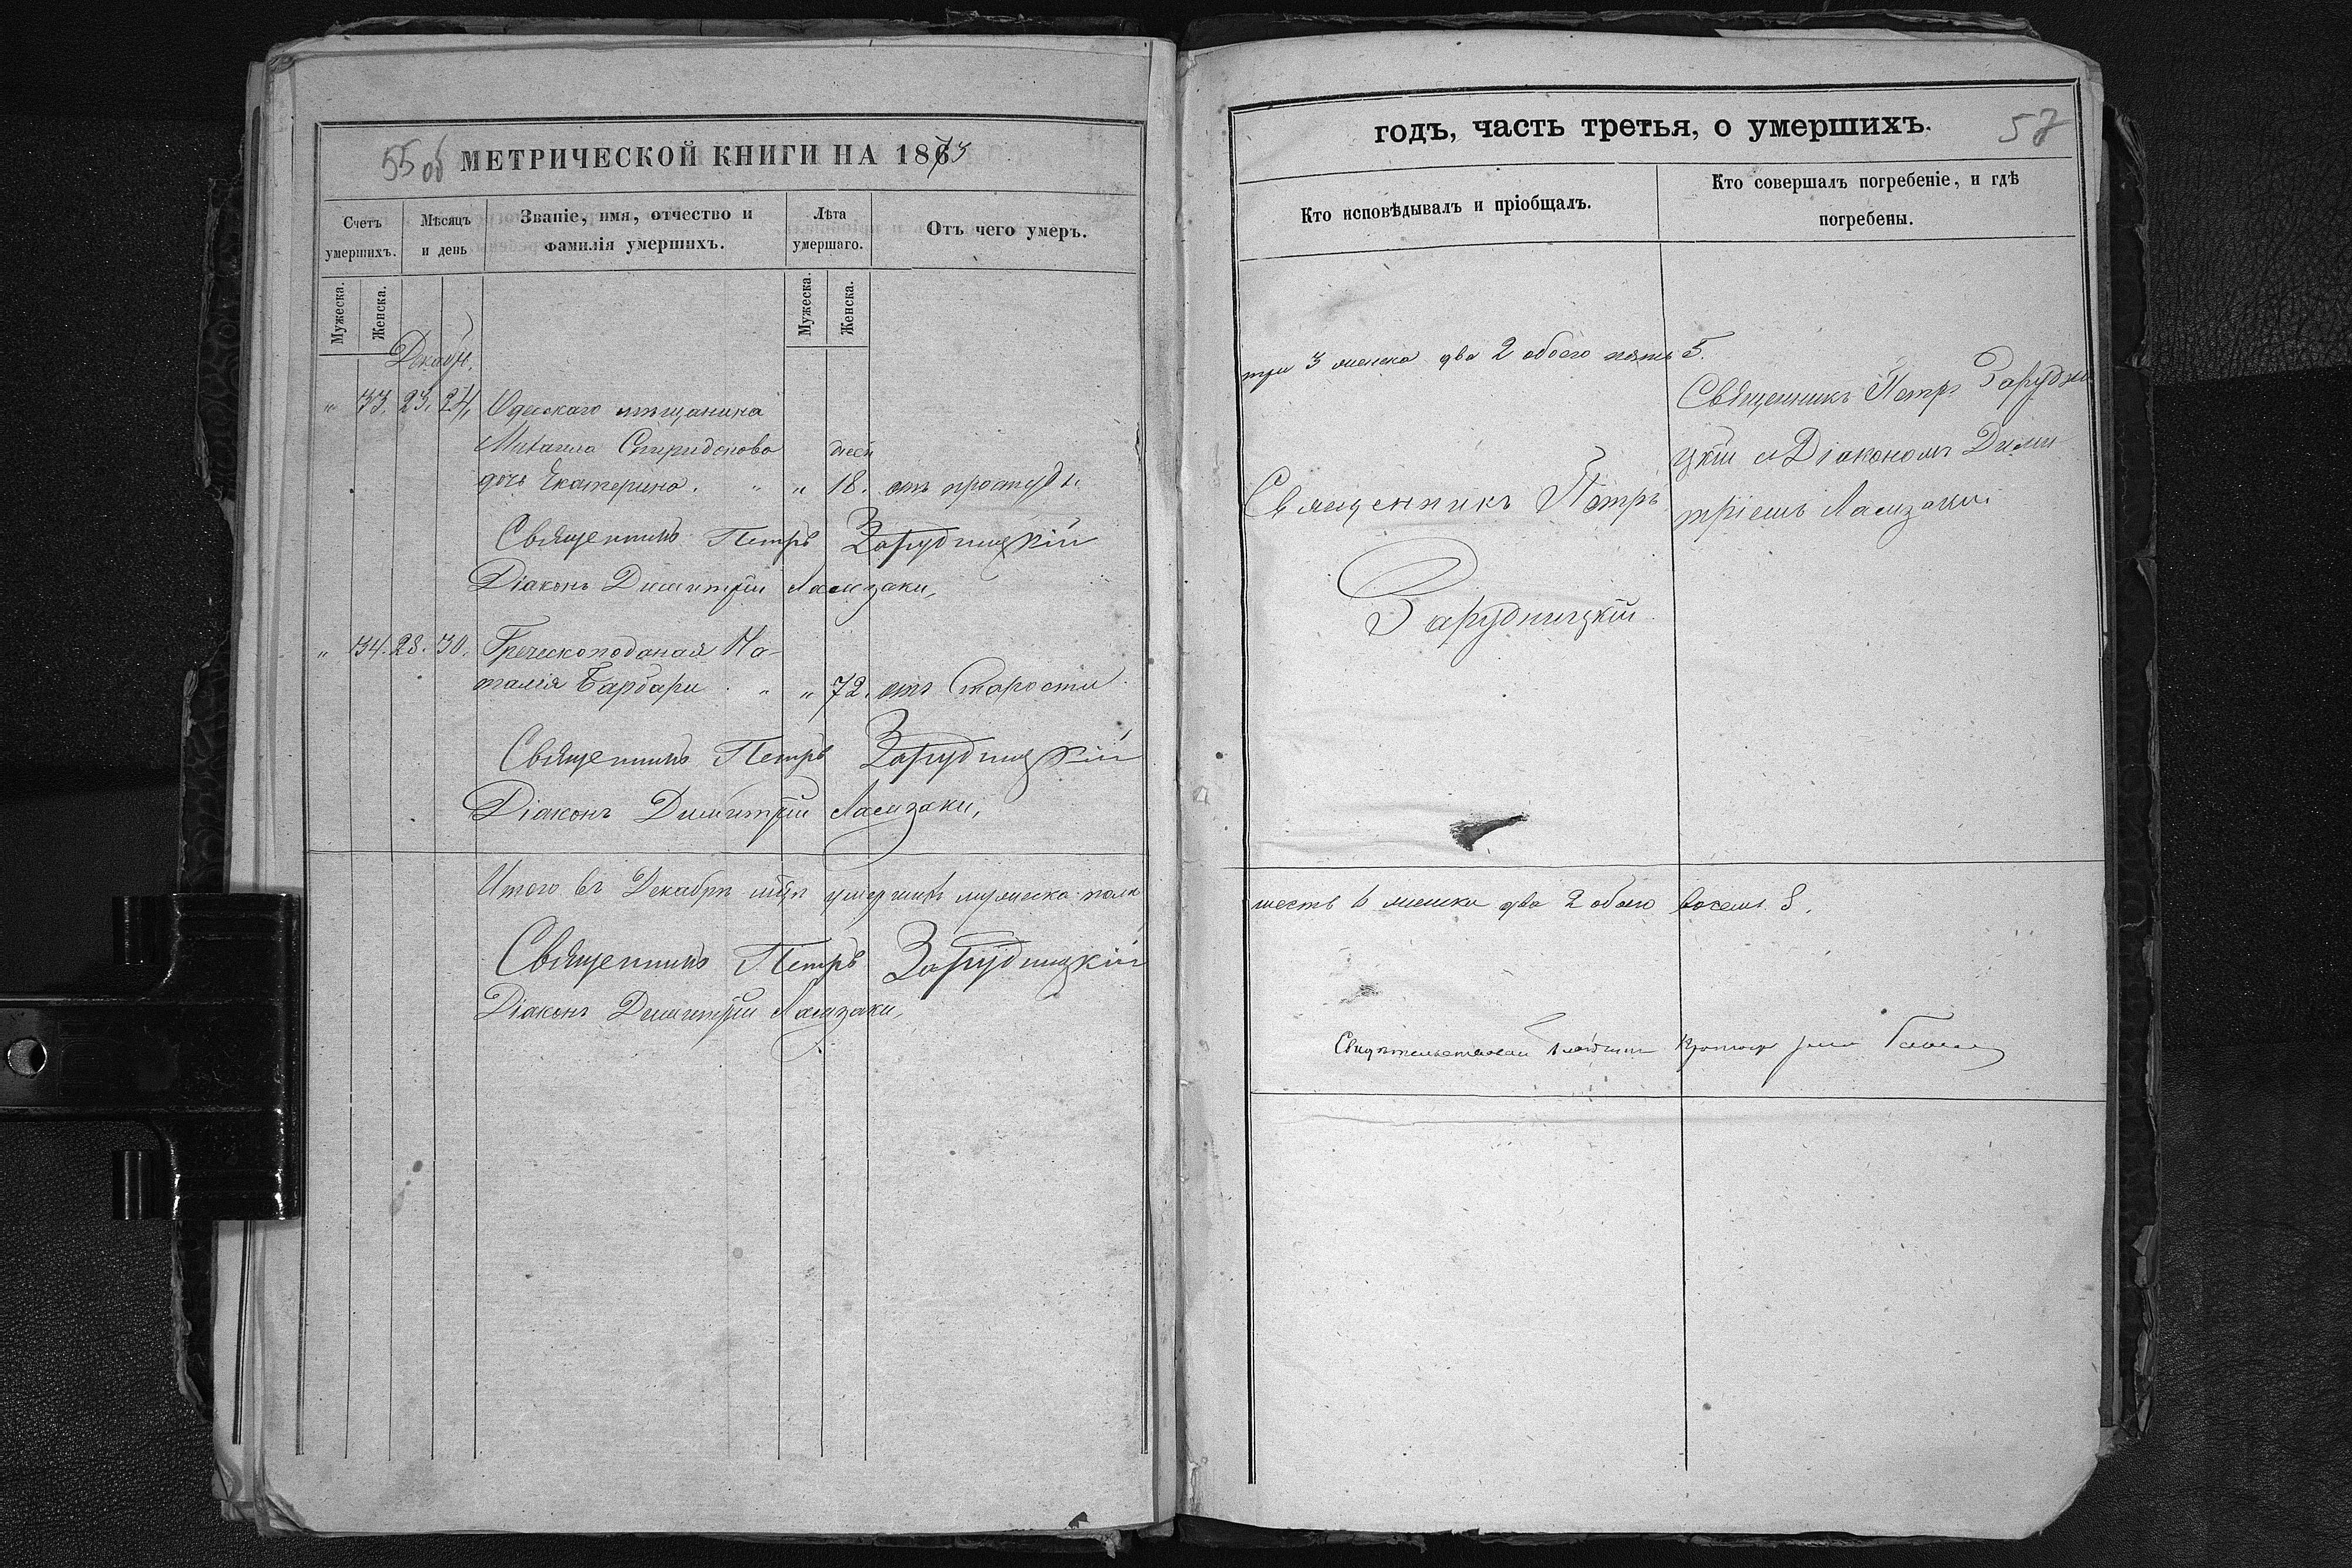 55 об МЕТРИЧЕСКОЙ КНИГИ НА 1873
Счетъ умершихъ.
Мѣсяцъ и день
Званіе, имя, отчество и фамилія умершихъ.
Лѣта умершаго.
Отъ чего умеръ.
Мужеска.
Женска.
Мужеска.
Женска.
Декабр.
" 33. 23. 24. Одесскаго мѣщанина
Михаила Спиридонова дней
дочь Екатерина. " " 18. отъ простуды
Священникъ Петръ Зарудницкій
Діаконъ Димитрій Ламзаки,
" 34. 28. 30. Греческоподаная На-
талія Барбари. " " 72. отъ старости
Священникъ Петръ Зарудницкій
Діаконъ Димитрій Ламзаки,
Итого въ Декабрѣ мцѣ умершихъ мужеска пола
Священникъ Петръ Зарудницкій
Діаконъ Димитрій Ламзаки,
годъ, часть третья, о умершихъ. 57
Кто исповѣдывалъ и пріобщалъ.
Кто совершалъ погребеніе, и гдѣ
погребены.
три 3 женска два 2 обоего пять 5.
Священникъ Петръ
Зарудницкій
Священникъ Петръ Зарудни
цкій съ Діакономъ Дими
тріемъ Ламзаки
шесть 6 женска два 2 обоего восемь 8.